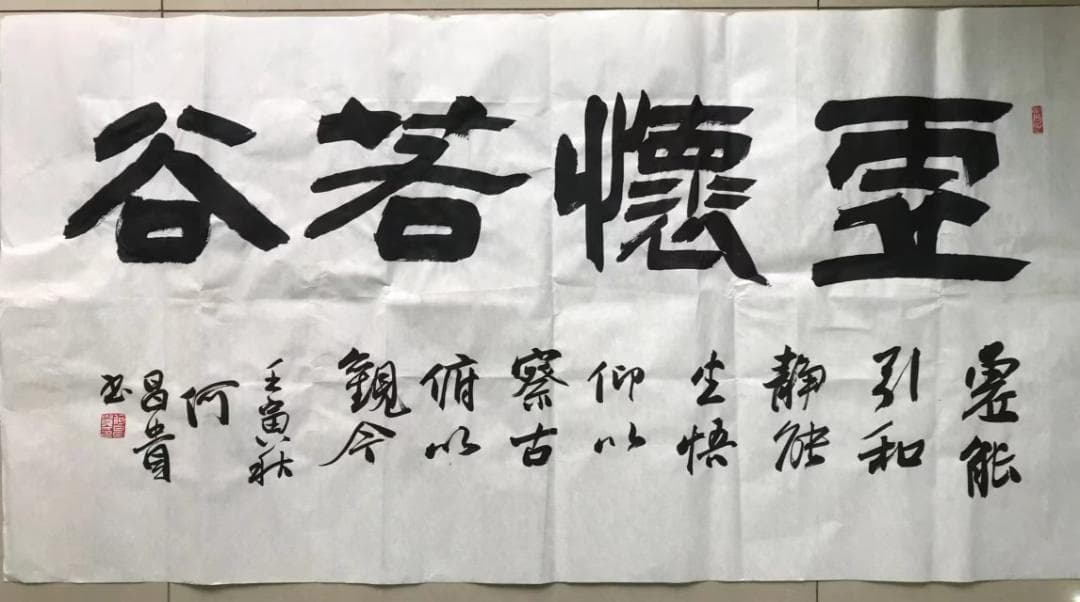 虚懷若谷
虚能
引和
静能
生悟
仰以
察古
俯以
觀今
壬寅秋
何
昌貴
书